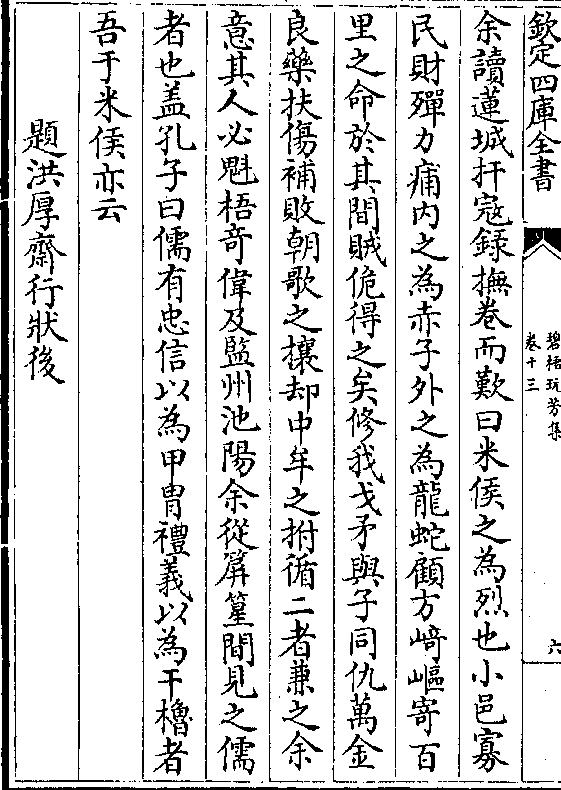 欽定四庫全書
碧梧玩芳集
卷十三
六
余讀蓮城扞寇録撫卷而歎曰米侯之為烈也小邑寡
民財殫力痡内之為赤子外之為龍蛇顧方﨑嶇寄百
里之命於其間賊佹得之矣修我戈矛與子同仇萬金
良藥扶傷補敗朝歌之攘却中牟之拊循二者兼之余
意其人必魁梧竒偉及監州池陽余從屏篂間見之儒
者也盖孔子曰儒有忠信以為甲胄禮義以為干櫓者
吾于米侯亦云
題洪厚齋行狀後